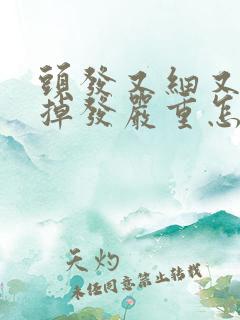 頭發又細又
掉發嚴重怎
天灼
未經同意禁止轉載